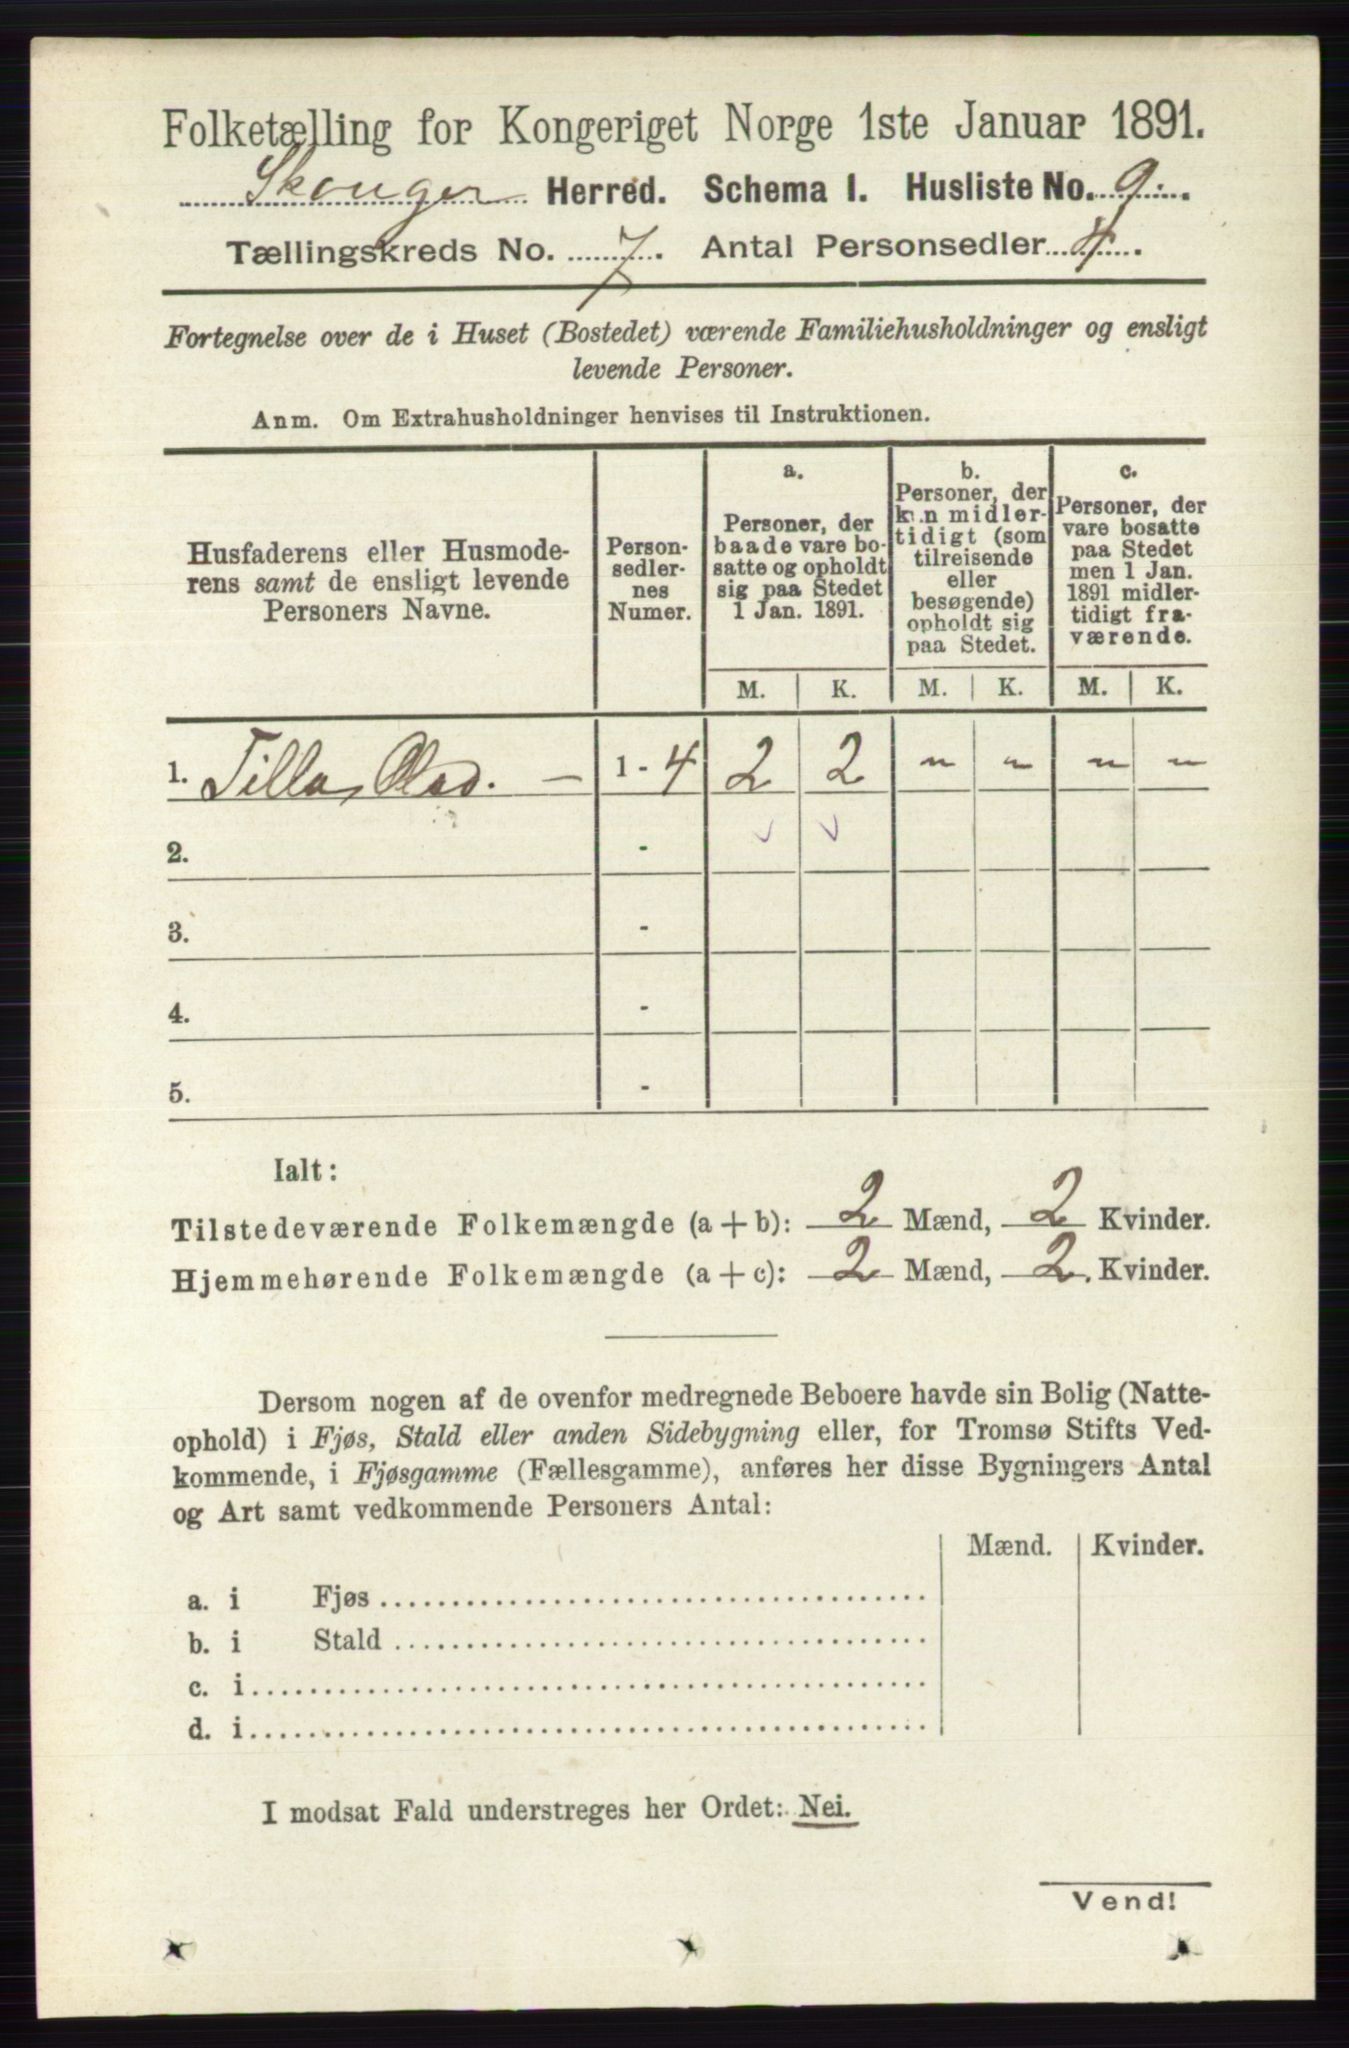 Folketælling for Kongeriget Norge 1ste Januar 1891.
Skouger Herred. Schema I. Husliste No. 9.
Tællingskreds No. 7. Antal Personsedler 4.
Fortegnelse over de i Huset (Bostedet) værende Familiehusholdninger og ensligt
levende Personer.
Anm. Om Extrahusholdninger henvises til Instruktionen.
Husfaderens eller Husmode-
rens samt de ensligt levende
Personers Navne.
Person-
sedler-
nes
Numer.
a.
Personer, der
baade vare bo-
satte og opholdt
sig paa Stedet
1 Jan. 1891.
b.
Personer, der
kun midler-
tidigt (som
tilreisende
eller
besøgende)
opholdt sig
paa Stedet.
c.
Personer, der
vare bosatte
paa Stedet
men 1 Jan.
1891 midler-
tidigt fra-
værende.
M. K. M. K. M. K.
1. Tilla, Olad. — 1 - 4 2 2 - - - -
2. -
3. -
4. -
5. -
Ialt:
Tilstedeværende Folkemængde (a + b): 2 Mænd, 2 Kvinder.
Hjemmehørende Folkemængde (a + c): 2 Mænd, 2. Kvinder.
Dersom nogen af de ovenfor medregnede Beboere havde sin Bolig (Natte-
ophold) i Fjøs, Stald eller anden Sidebygning eller, for Tromsø Stifts Ved-
kommende, i Fjøsgamme (Fællesgamme), anføres her disse Bygningers Antal
og Art samt vedkommende Personers Antal:
Mænd. Kvinder.
a. i Fjøs
b. i Stald
c. i
d. i
I modsat Fald understreges her Ordet: Nei.
Vend!